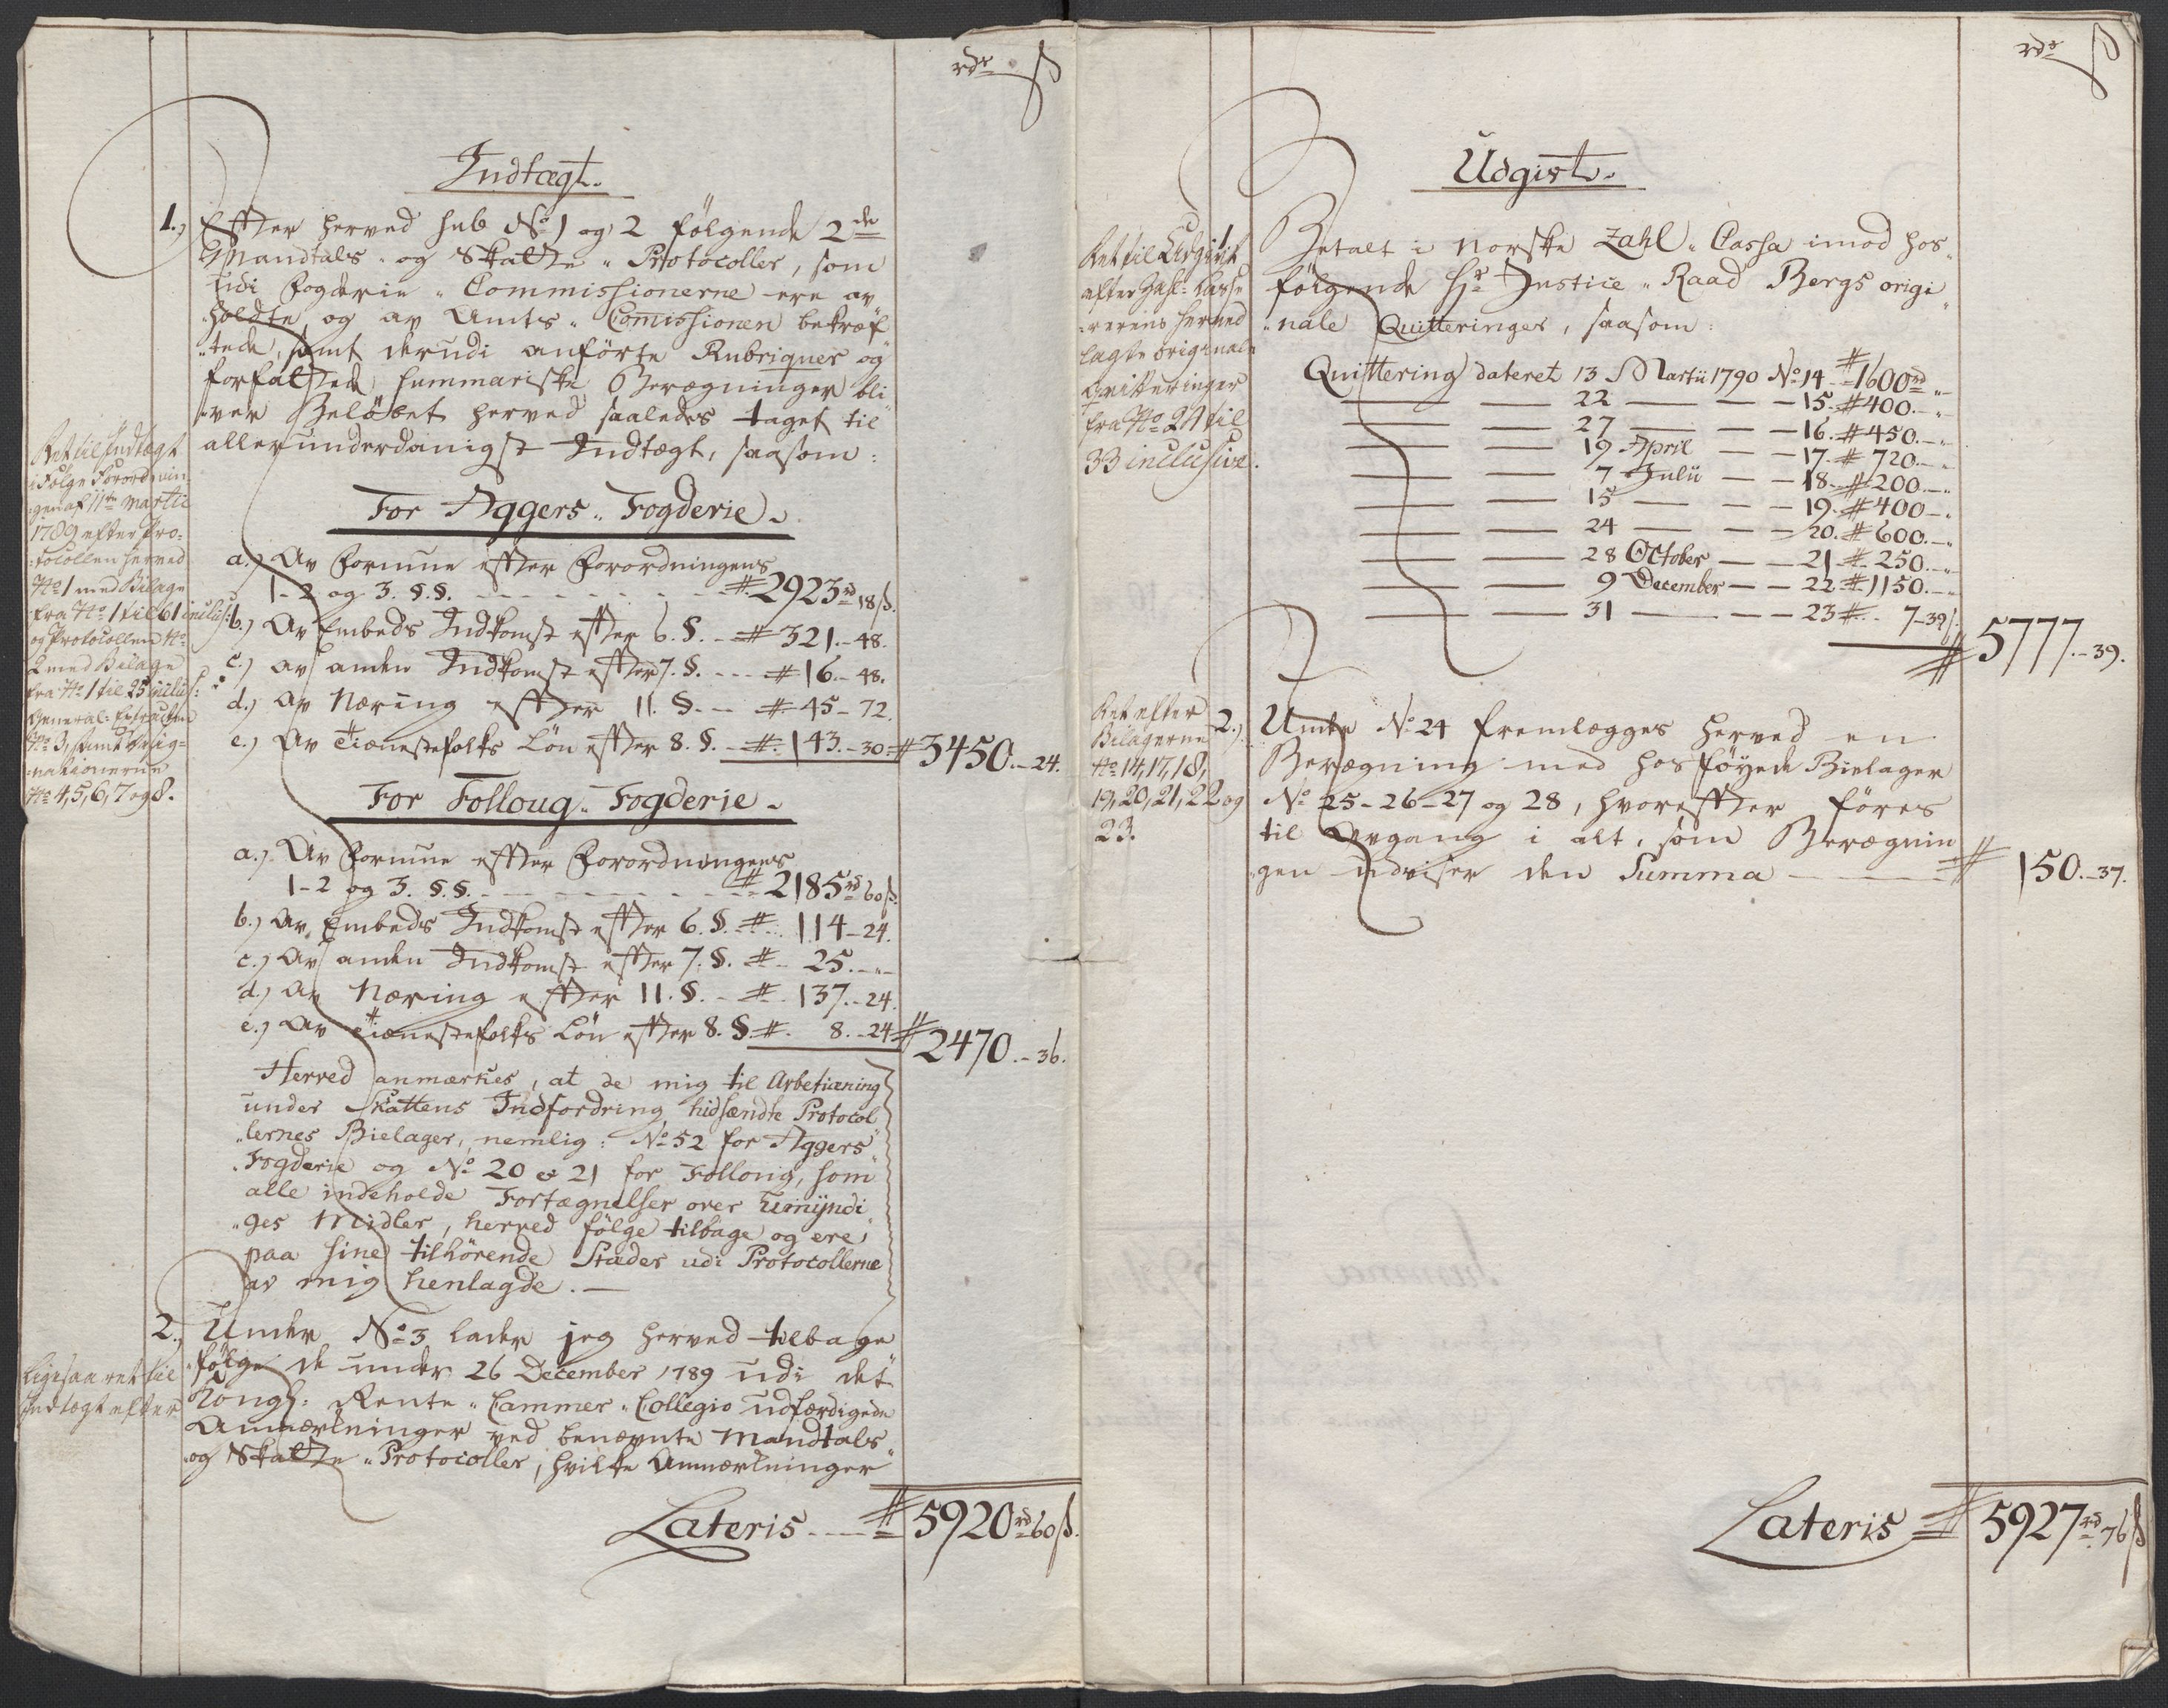 rdr ß
Indtægt.
1.) Efter herved sub No 1 og 2 følgende 2de
Mandtals- og Skatte-Protocoller, som
udi Fogderie-Commissionerne ere av-
holdte og av Amts-Commissionen bekræf-
tede, samt derudi anførte Rubriquer og
forfattede summariske Beregninger bli-
ver Beløbet herved saaledes taget til
allerunderdanigst Indtægt, saasom:
Ret til Indtægt
i Følge Forordnin-
gen af 11te Martii
1789 efter Pro-
tocollen herved
No 1 med Bilage
fra No 1 til 61 inclus:
og Protocollen No
2 med Bilage
fra No 1 til 25 inclus:
General-Extracten
No 3, samt
No 4, 5, 6, 7 og 8.
For Aggers Fogderie
a.) Av Formue efter Forordningens
1-2 og 3. §.§. # 2923rd 18ß.
b.) Av Embeds Indkomst efter 6. §. # 321.-48.
c.) av anden Indkomst efter 7. §. # 16.-48.
d.) Av Næring efter 11. §. # 45-72.
e.) Av Tienestefolks Løn efter 8. §. # 143.-30 # 3450.-24.
For Folloug Fogderie
a.) Av Formue efter Forordningens
1-2 og 3. §.§. # 2185rd 60ß.
b.) Av Embeds Indkomst efter 6. §. # 114-24.
c.) Av anden Indkomst efter 7. §. # 25.-"-
d.) Av Næring efter 11. §. # 137.-24.
e.) Av Tienestefolks Løn efter 8. § # 8.-24 # 2470.-36.
Herved anmærkes, at de mig til Avbetiening
under Skattens Indfordring hidsendte Protocol-
lernes Bielager, nemlig: No 52 for Aggers
Fogderie og No 20 & 21 for Follong, som
alle indeholde Fortægnelser over Umÿndi-
ges Midler, herved følge tilbage og ere
paa sine tilhørende Stæder udi Protocollerne
av mig henlagde.
2.) Under No 3 lader jeg herved tilbage
følge de under 26 December 1789 udi det
Kongl: Rente-Cammer-Collegio udfærdigede
Anmærkninger ved benævnte Mandtals-
og Skatte-Protocoller, hvilke Anmærkninger
Ligesaa ret til
Indtægt efter
Lateris # 5920rd 60ß.
rdr ß
Udgivt.
1. Betalt i Norske Zahl-Cassa imod hos-
følgende Hr Justice-Raad Bergs origi-
nale Quitteringer, saasom:
Ret til Udgivt
efter Zahl-Casse-
rerens herved
lagte original
Qvitteringer
fra No 24 til
33 inclusive.
Quittering dateret 13 Martii 1790 No 14 # 1600rd "
22 — 15. # 400.-"
27 — 16. # 450.-"
19 April — 17. # 720.-"
7 Julii — 18. # 200.-"
15 — 19. # 400-"
24 — 20. # 600.-"
28 October — 21 # 250.-"
9 December — 22 # 1150.-"
31 — 23 # 7-39ß.
# 5777.-39.
2.) Under No 24 fremlægges herved en
Beregning med hosføyede Bielager
No 25-26-27 og 28, hvorefter føres
til Avgang i alt, som Beregnin-
gen udviser den Summa # 150.-37.
Ret efter
Bilagerne
No 14, 17, 18,
19, 20, 21, 22 og
23.
Lateris # 5927rd 76ß